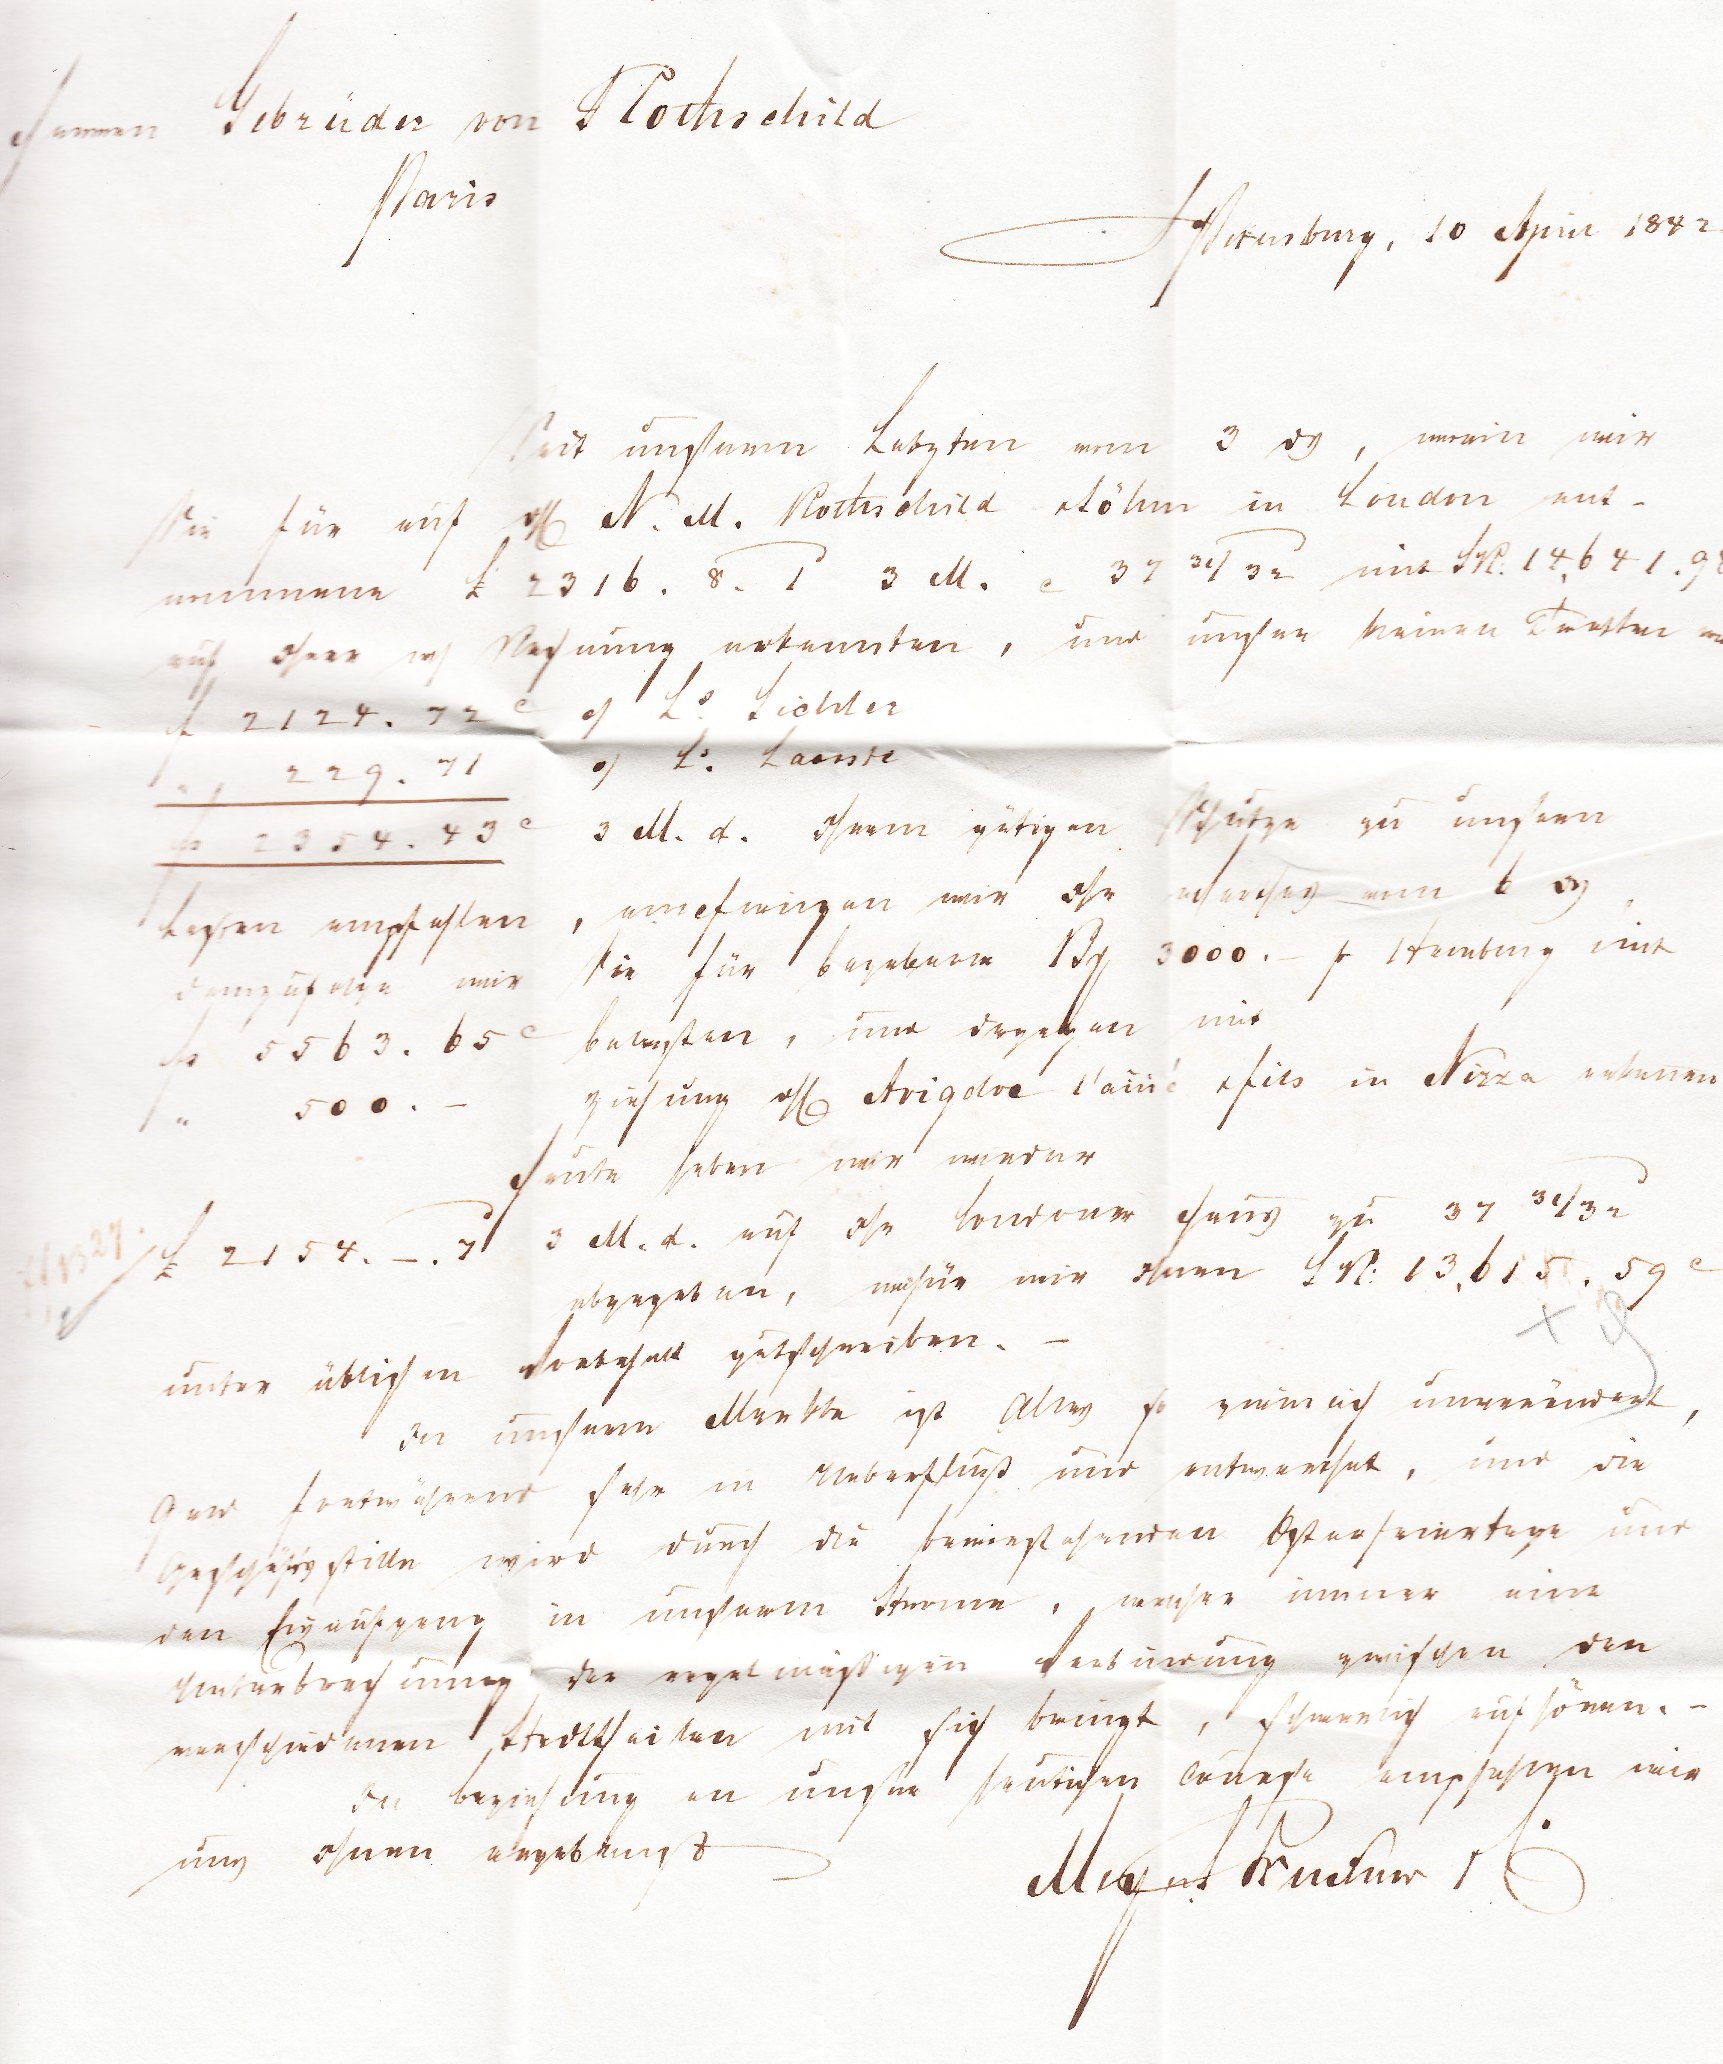 Herren Gebrüder von Rothschild
Paris
St Petersburg, 10 April 1842
Seit unserem Letzten vom 3 ds, worin wir
Sie für auf HH N. M. Rothschild & Söhne in London ent-
nommene £ 2316. 8. 1 3 M. c 37 31/32 mit SR: 14,641.98
auf Ihrer Rechnung erkannten, und unsere kleinen Tratten von
f 2124. 72 c o/ Ls. Lichtler
„ 229. 71 o/ Ls.
fs 2354. 43 c 3 M. d. Ihrem gütigen Schutze zu unseren
Lasten empfahlen, empfingen wir Ihr Werthes vom 6 ds,
demzufolge wir Sie für begebene B 3000.– p Hamburg mit
fs 5563. 65 c belasten, und dagegen mit
„ 500. – Ziehung HH Avigdor l'ainé & fils in Nizza erkennen
Heute haben wir wieder
£ 2154. –. 7 3 M. d. auf Ihr Londoner Haus zu 37 31/32
abgegeben, wofür wir Ihnen SR: 13,615. 59 c
unter üblichem Vorbehalt gutschreiben. –
In unserem Markte ist Alles so ziemlich unverändert,
Geld fortwährend sehr in Ueberfluß und entwerthet, und die
Geschäftsstille wird durch die bevorstehenden Osterfeiertage und
den Eisaufgang in unserem Strome, welcher immer eine
Unterbrechung der regelmäßigen Verbindung zwischen den
verschiedenen Stadttheilen mit sich bringt, schwerlich aufhören. –
In Beziehung an unsere heutigen Course empfehlen wir
uns Ihnen ergebenst